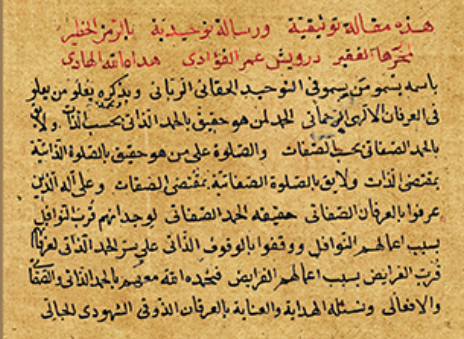 هذه مقالة توثيقية ورسالة توحيدية بالرمز الخطير
لمحررها الفقير درويش عمر الفؤادى هداه الله الهادى
باسمه يسمو من يسمو فى التوحيد الحقانى الربانى وبذكره يعلو من يعلو
فى العرفان الالهى الرحمانى الحمد لمن هو حقيق بالحمد الذاتى بحسب الذات ولايق
بالحمد الصفاتى بحسب الصفات والصلوة على من هو حقيق بالصلوة الذاتية
بمقتضى الذات ولايق بالصلوة الصفاتية بمقتضى الصفات وعلى آله الذين
عرفوا بالعرفان الصفاتى حقيقة الحمد الصفاتى لوجدانهم قرب النوافل
بسبب اعمالهم النوافل ووقفوا بالوقوف الذاتى على سر الحمد الذاتى
قرب الفرايض بسبب اعمالهم الفرايض فنحمد الله معهم بالحمد الذاتى والصفاتى
والافعالى ونسئله الهداية والعناية بالعرفان الذوقى الشهودى